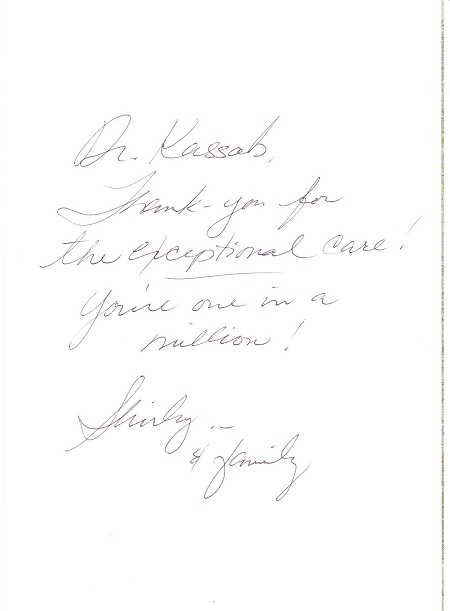 Dr. Kassab,
Thank-you for
the exceptional care!
You're one in a
million!
Shirley --
& family